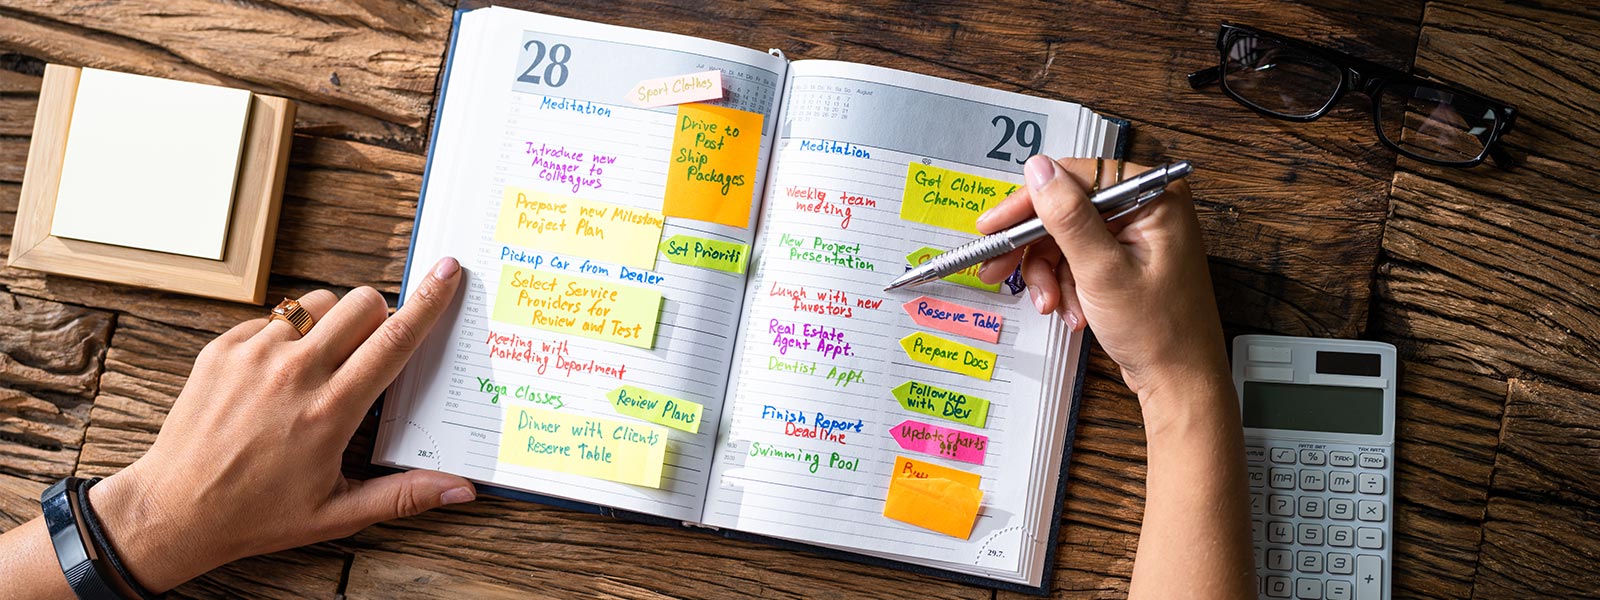 28
Sport Clothes
Meditation
Drive to
Post
Ship
Packages
Introduce new
Manager to
Colleagues
Prepare new Milestone
Project Plan
Set Prioriti
Pickup Car from Dealer
Select Service
Providers for
Review and Test
Meeting with
Marketing Department
Yoga Classes
Review Plans
Dinner with Clients
Reserve Table
Wichtig
28.7.
August
29
Meditation
Get Clothes
Chemical
Weekly team
meeting
New Project
Presentation
Lunch with new
Investors
Reserve Table
Real Estate
Agent Appt.
Prepare Docs
Dentist Appt.
Follow up
with Dev
Finish Report
Deadline
Update Charts
!!!
Swimming Pool
29.7.
RATE SET
TAX RATE
√ % TAX- TAX+
MR M- M+ ÷
7 8 9 ×
4 5 6 -
1 2 3 +